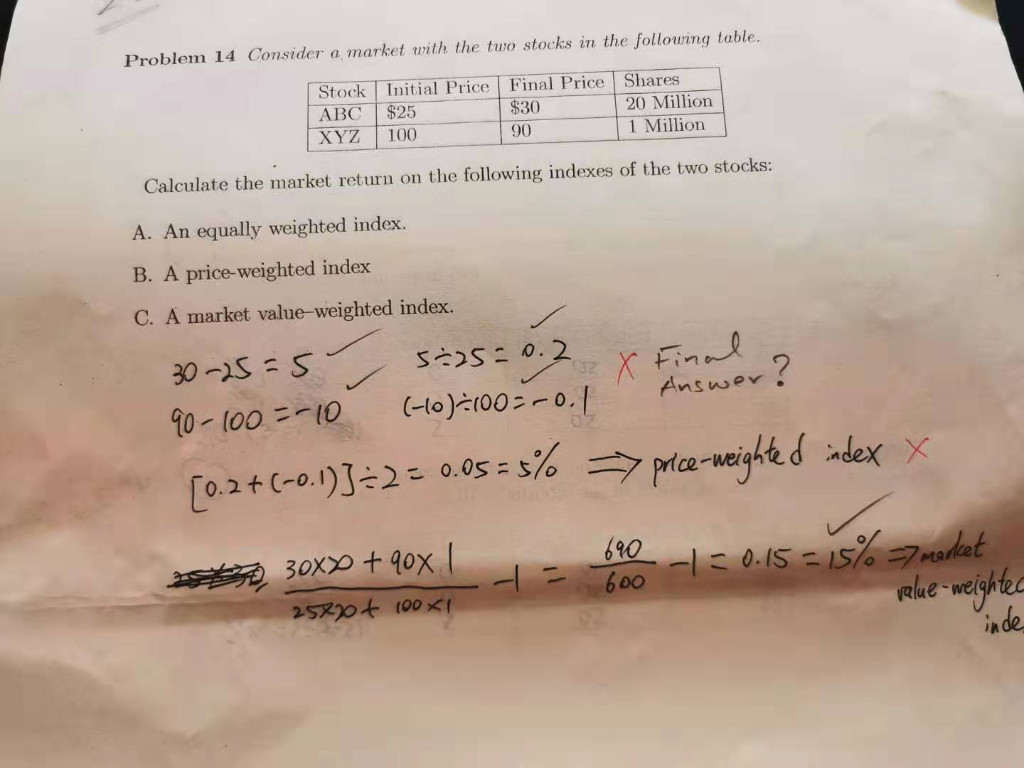 Problem 14 Consider a market with the two stocks in the following table.
Stock Initial Price Final Price Shares
ABC $25 $30 20 Million
XYZ 100 90 1 Million
Calculate the market return on the following indexes of the two stocks:
A. An equally weighted index.
B. A price-weighted index
C. A market value-weighted index.
30-25=5 ✓ 5÷25=0.2 ✓ X Final
Answer?
90-100=-10 ✓ (-10)÷100=-0.1 ✓
[0.2+(-0.1)]÷2=0.05=5% ⇒ price-weighted index X
30×20+90×1
25×20+100×1
-1 = 690
600
-1=0.15=15% ✓ ⇒ market
value-weighted
inde